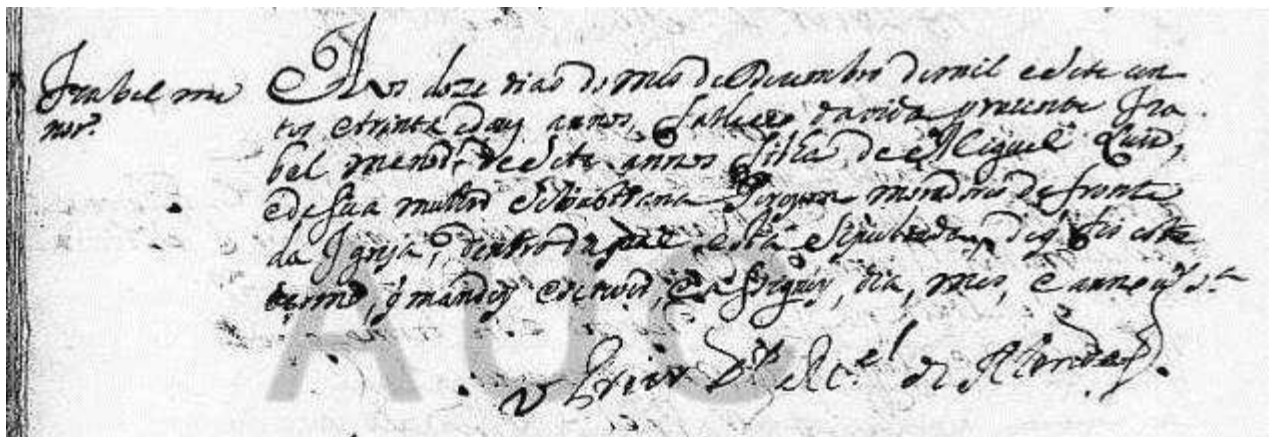 Izabel me
nor.
Aos doze dias do mes de Dezembro de mil e sete cen
tos e trinta e annos, falleceo da vida prezente Iza
bel menor de sete annos filha de Miguel Luis,
e de sua mulher moradores de fronte
da Igreja, dentro da qual está sepultada, de q̃ fis este
termo, q̃ mandey escrever, e asigney, dia, mes, e anno ut s.ª
O Prior de Almeida
AUC